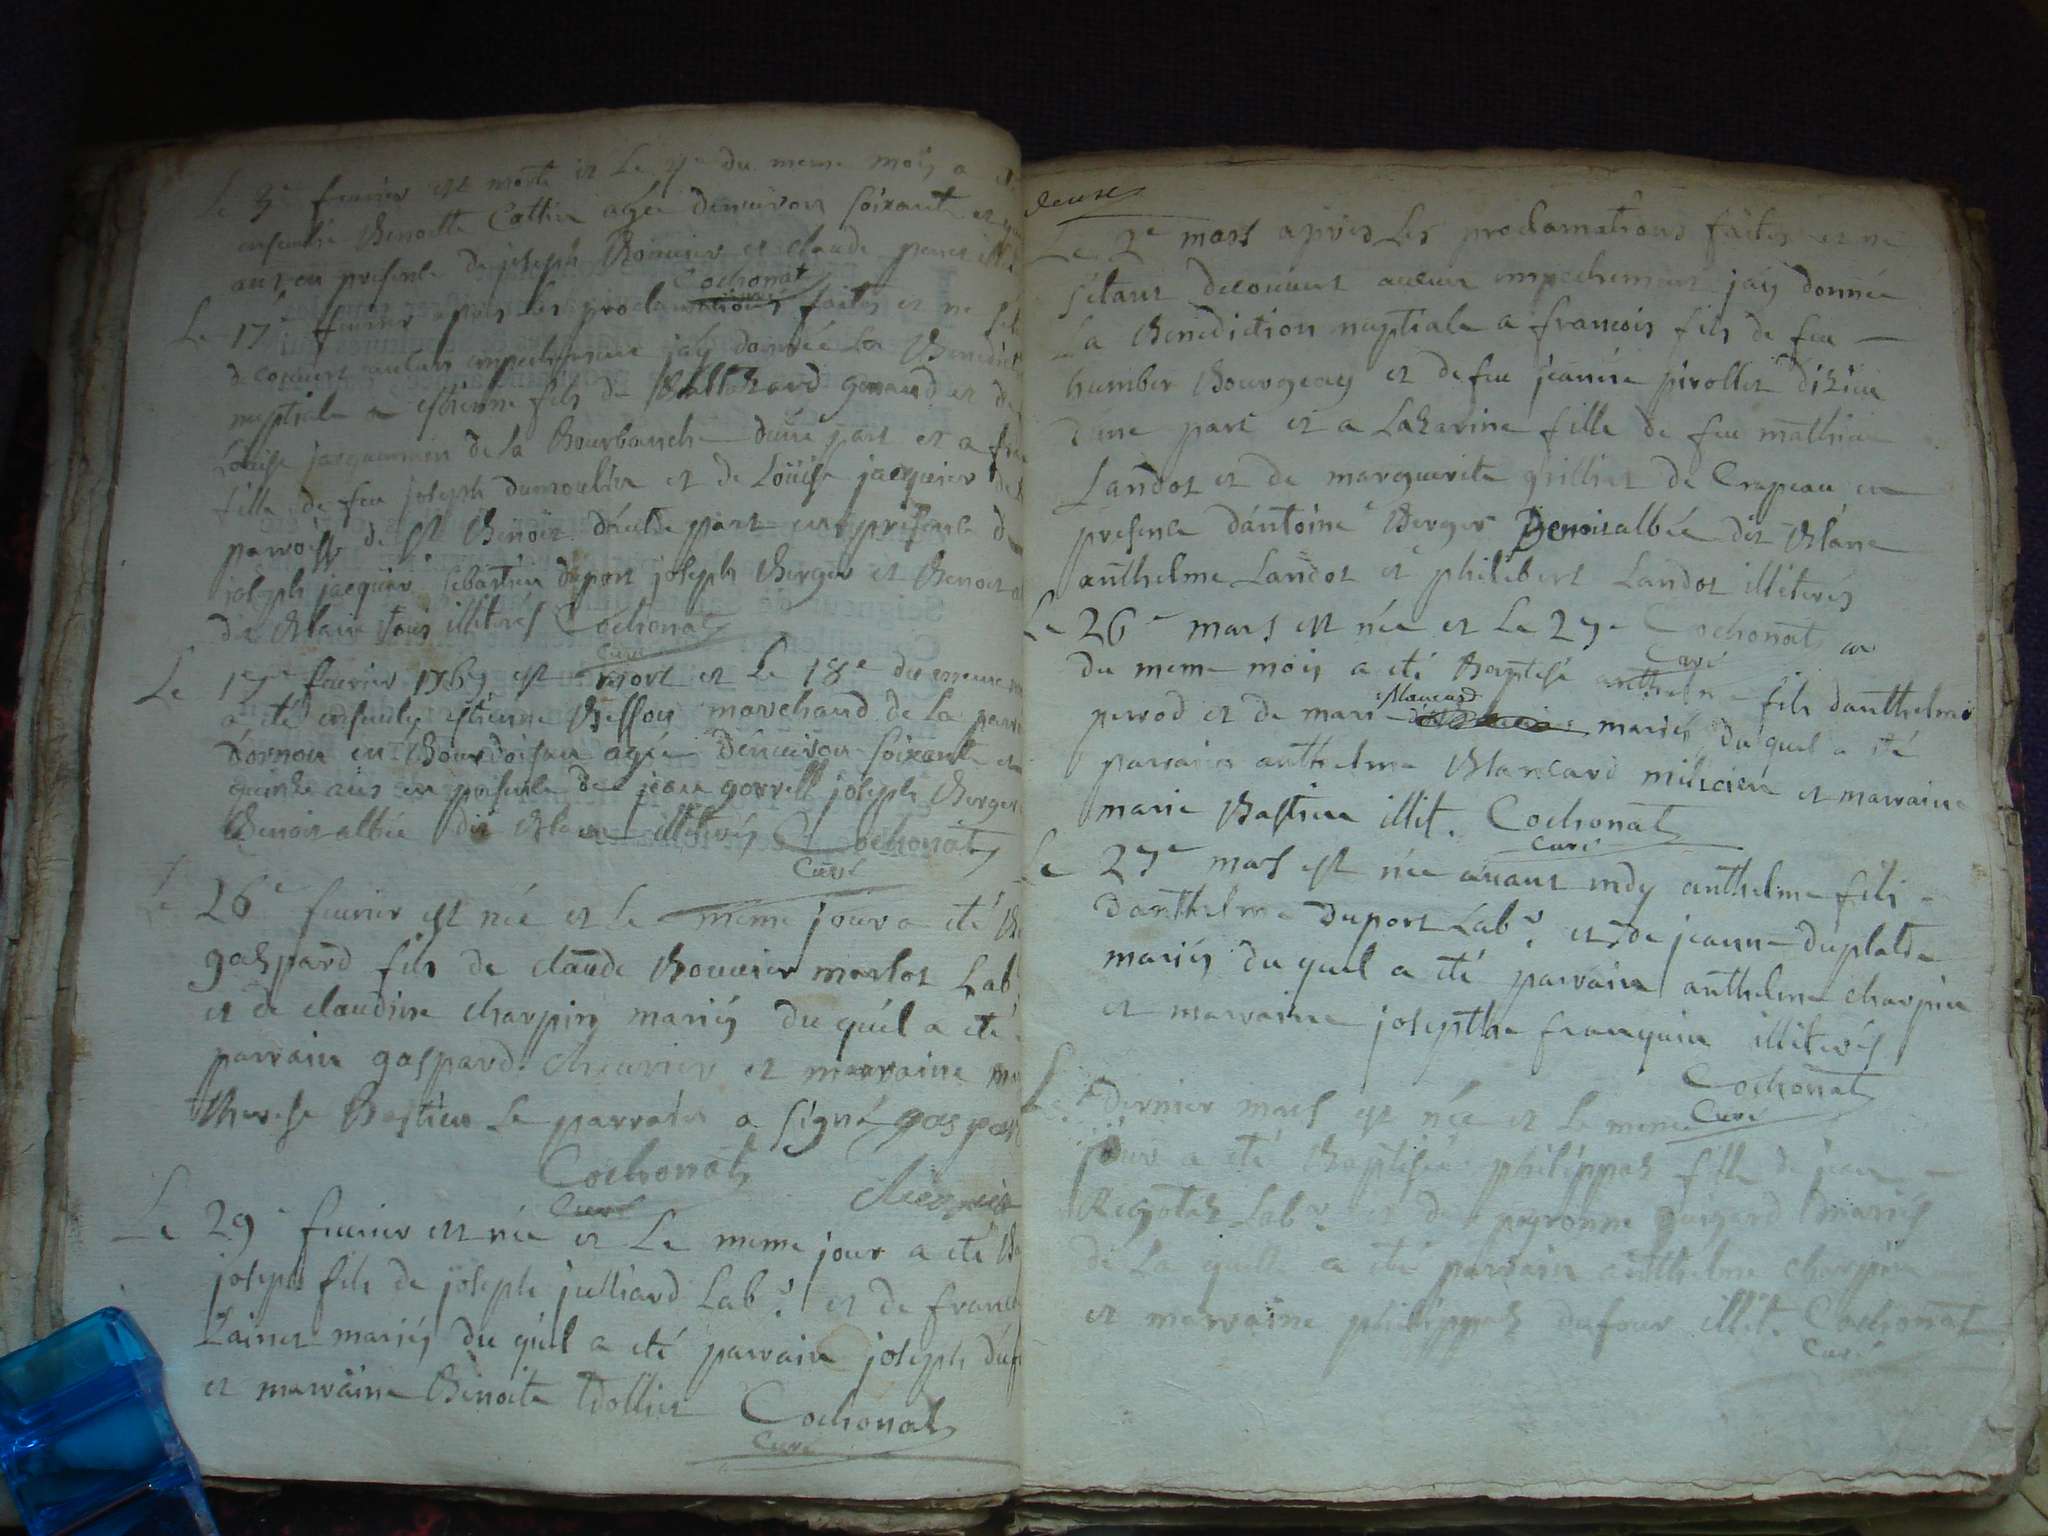 Le 3e fevrier est morte et Le du meme mois a
ensevelie Benoitte Cottin agée denuiron soixante et
ans en presence de joseph Bouuier et claude
Cochonat
curé
Le 17e feurier apres Les proclamations faites et ne
decouuert aucun empechement jay donnée La Benedict
nuptiale a estienne fils de Baltazard genaud et de
Louise de La Bourbanche dune part et a
fille de feu joseph dumoulin et de Loüise jacquier
parroisse de st Benoit dautre part en presence de
joseph jacquier sebastien duport joseph Berger et Benoit
dit Blanc tous illiterés Cochonat
curé
Le 17e feurier 1769 est mort et Le 18e du meme
a eté enseuely estienne Besson marchand de La parr
dornon en Bourdoisan agée denuiron soixante et
quinze ans en presence de jean gorrell joseph Berger
Benoit albée dit Blanc illiterés Cochonat
Curé
Le 26e feurier est née et Le meme jour a eté
gaspard fils de claude Bouuier marlot Lab
et de claudine charpin mariés du quel a eté
parrain gaspard cheurier et marraine
therese Bastien Le parrain a signé gaspard
Cochonat
curé
Le 29e feurier est née et Le meme jour a eté
joseph fils de joseph julliard Lab.r et de
Lainet mariés du quel a eté parrain joseph
et marraine Benoite trollier Cochonat
curé
deuxe
Le 2e mars apres Les proclamations faites et ne
sétant decouuert aucun empechement jay donnée
La Benediction nuptiale a francois fils de feu
humber Bourgeay et de feu jeanne pirollet dizieu
dune part et a Lazarine fille de feu mathieu
Landot et de marguerite grillet de Crapeau en
presence dantoine Berger Benoit albée dit Blanc
anthelme Landot et philibert Landot illiterés
Cochonat
Curé
Le 26e mars est née et Le 27e
du meme mois a eté Baptisé anthelme fils danthelme
perrod et de marie Blancard mariés du quel a eté
parrain anthelme Blancard milicien et marraine
marie Bastien illit. Cochonat
curé
Le 27e mars est née auant midy anthelme fils
danthelme duport Lab.r et de jeanne duplatre
mariés du quel a eté parrain anthelme charpin
et marraine josepthe françuin illiterés
Cochonat
Curé
Le dernier mars est née et Le meme
jour a eté Baptisée philippaz fille de jean
Lab.r et de peronne guigard mariés
de La quelle a eté parrain anthelme charpin
et marraine philippaz dufour illit. Cochonat
Curé